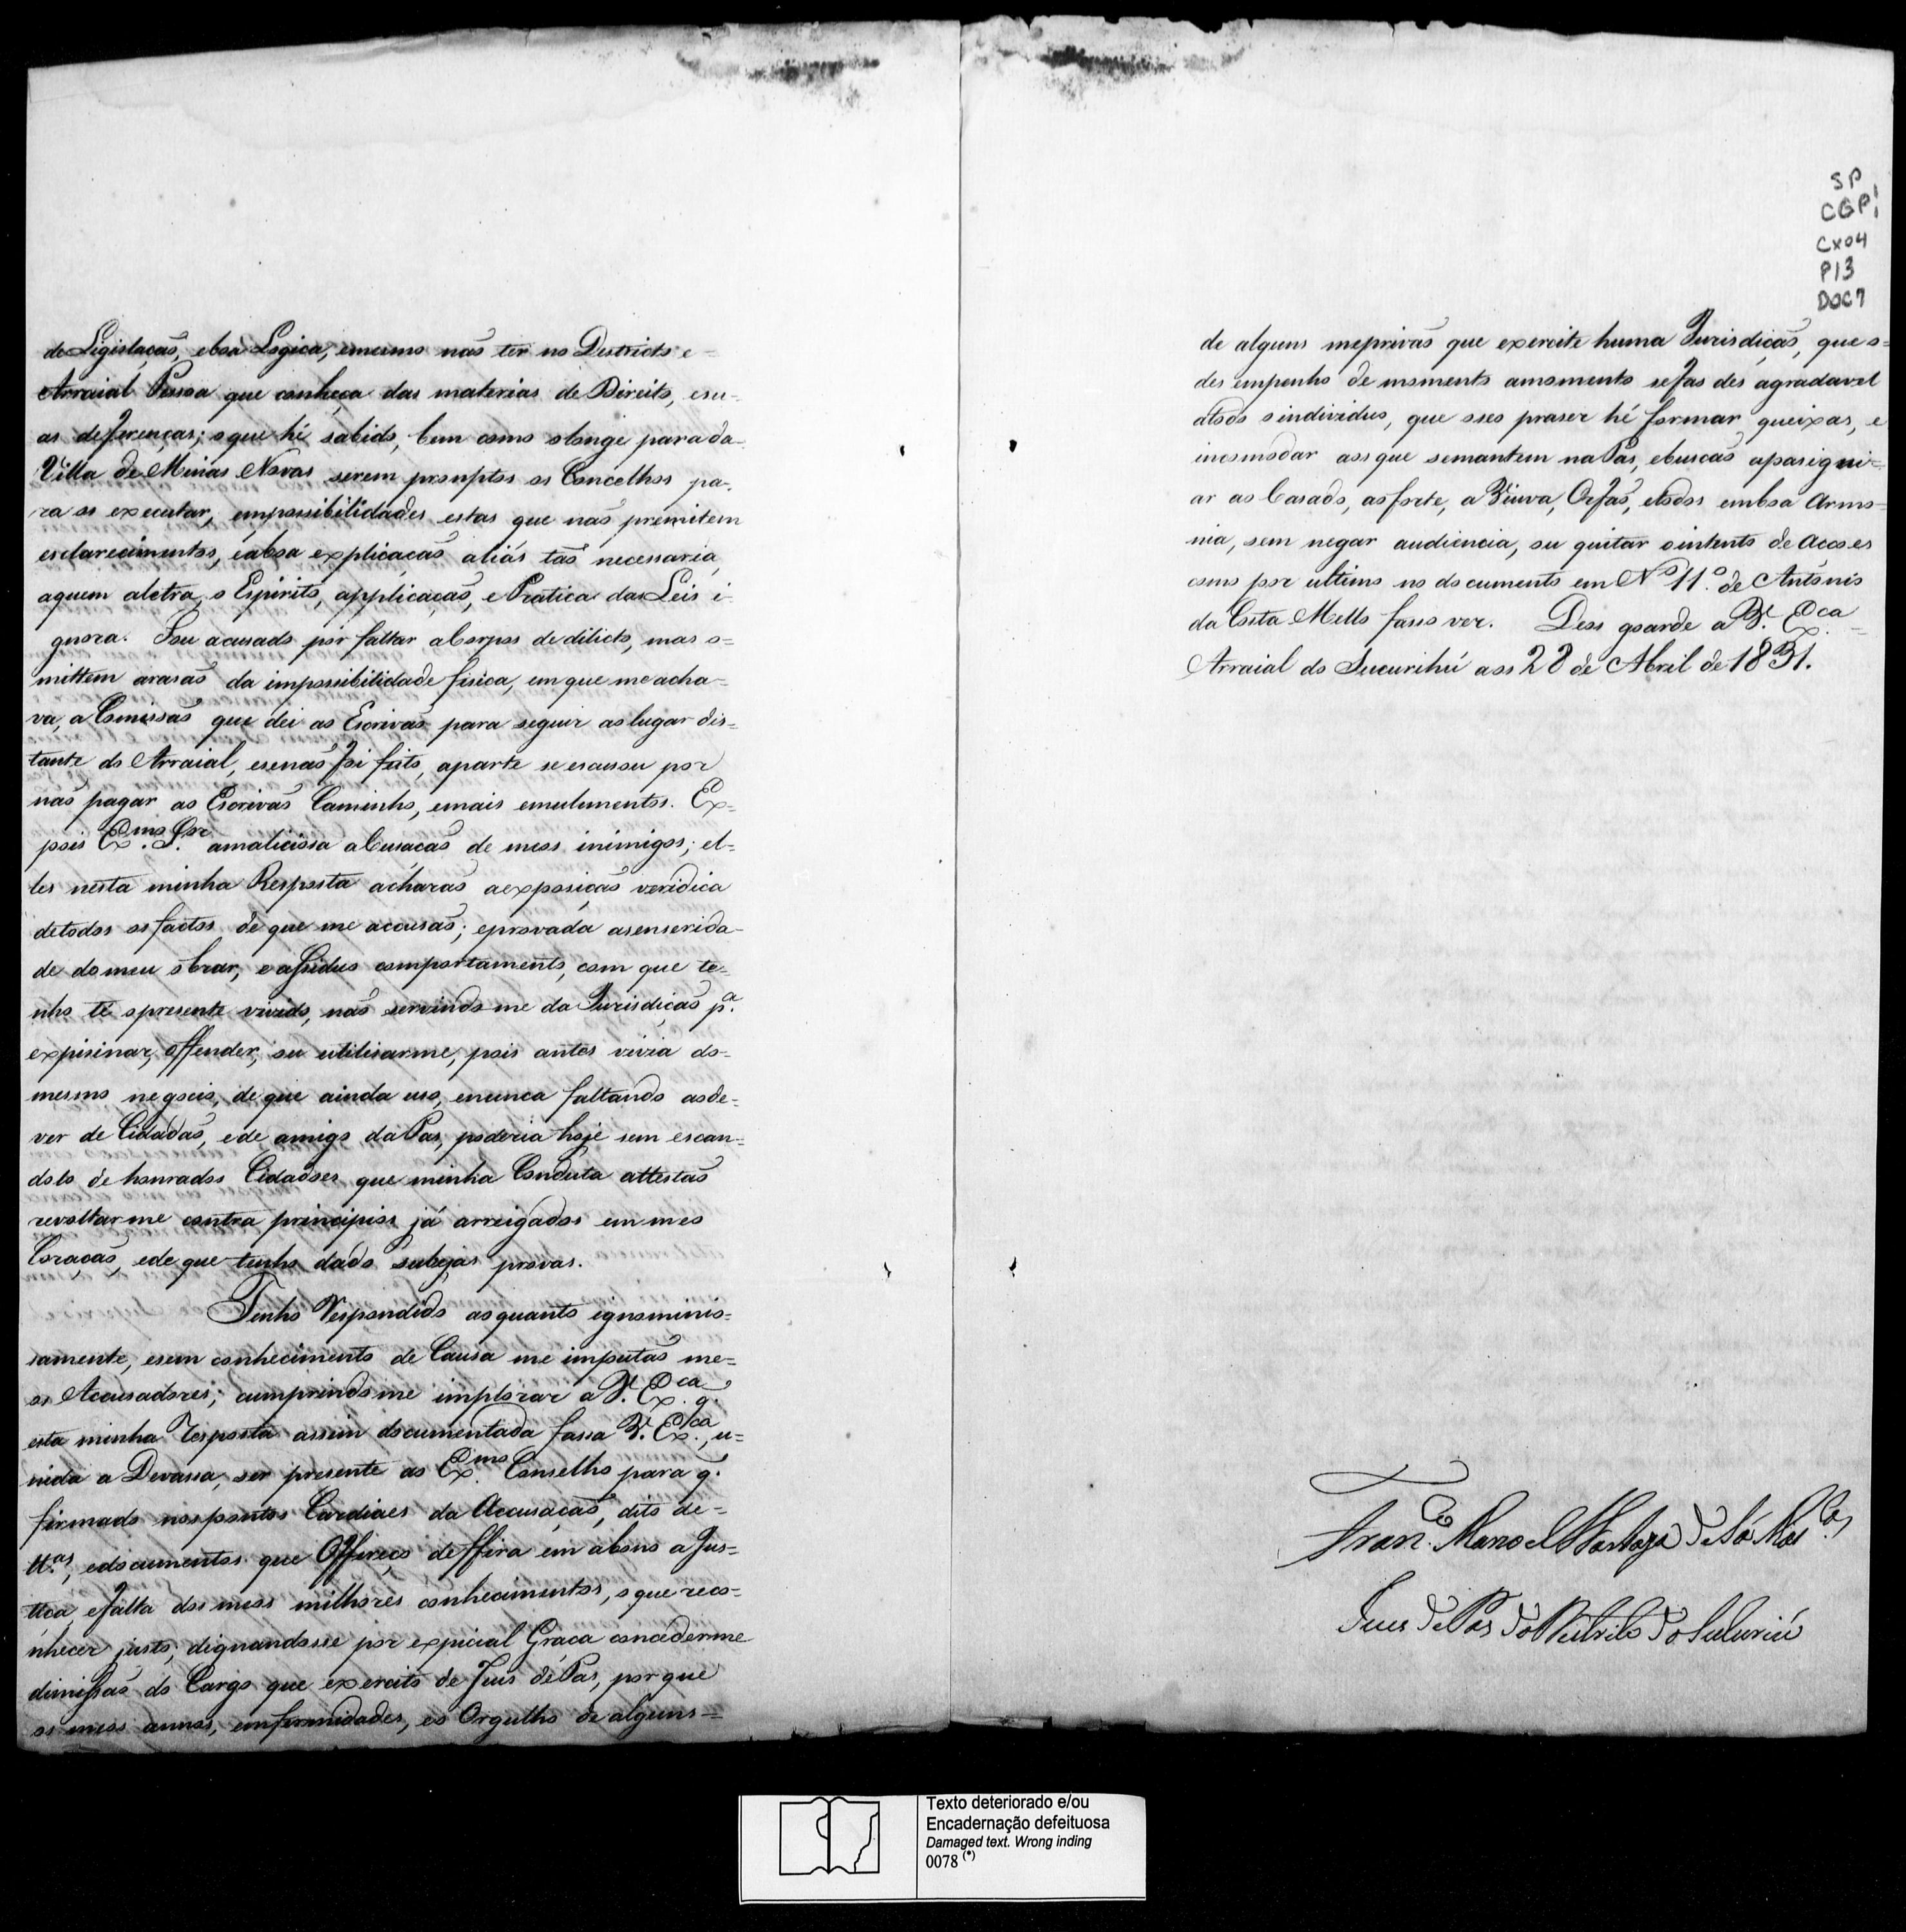 de Legislação, eboa Logica, emesmo não ter no Districto e=
Arraial Pessoa que conheça das materias de Direito, esu-
as deferenças; oque hé sabido, bem como olonge para da
Villa de Minas Novas serem promptos os Concelhos pa-
ra os executar, empossibilidades estas que não premitem
esclarecimentos, eaboa explicação aliás tão necessaria,
aquem aletra, o Espirito, applicação, e Pratica das Leis i-
gnora. Sou acusado por faltar a Corpos de dilicto, mas o=
mittem arasão da impossibilidade fisica, em que meacha-
va, a Comissão que dei ao Escrivão para seguir ao lugar dis-
tante do Arraial, esenão foi feito, aparte se escusou por
não pagar ao Escrivão Caminho, emais emulumentos. Ex-
pois Ex.mo Snr. amaliciosa aCusação de meos inimigos; el-
les nesta minha Resposta acharão aexposição veridica
detodos osfactos de que me acousão; eprovada asenserida-
de do meu obrar, e assiduo comportamento, com que te-
nho té opresente vivido, não servindome da Jurisdição p.a
expisinar, offender, ou utilisarme, pois antes vivia do-
mesmo negocio, de que ainda uso, enunca faltando aode-
ver de Cidadão, ede amigo da Pas, poderia hoje sem escan-
dolo de honrados Cidadoes que minha Conduta attestão
revoltarme contra principios já arreigados em meo
Coração, ede que tenho dado subejas provas.
Tenho Respondido aoquanto egnominio-
samente, esem conhecimento de Causa me imputão me-
os Acousadores; cumprindome implorar a V. Ex.ca q.
esta minha Resposta assim documentada fassa V. Ex.ca, u=
nida a Devassa, ser presente ao Ex.mo Conselho para q.
firmado nospontos Cardiaes da Accusação, dito de-
ttas, edocumentos que Offireço deffira em abono a Jus-
tiça, efalta dos meos milhores conhecimentos, o que reco-
nhecer justo; dignandosse por expicial Graça concederme
dimissão do Cargo que exercito de Juis de Pas, por que
os meos annos, emfermidades, eo Orgulho de alguns=
SP
CGP1
Cx04
P13
DOC7
de alguns meprivão que exercite huma Jurisdição, que o=
desempenho de momento amomento sefas desagradavel
atodo oindividuo, que oseo praser hé formar queixas, e
incomodar aos que semantem na Pas, ebuscão apasigui-
ar ao Casado, aoforte, a Viuva, Orfão, etodos emboa Armo-
nia, sem negar audiencia, ou quitar ointento de Acoes
como por ultimo no documento em Nº 11º. de Antonio
da Costa Mello fasso ver. Deos goarde a V. Ex.ca=
Arraial do Sucurihú aos 28 de Abril de 1831.
Fran.co Manoel
Juis de Pas do Destrito do Sucuriú
Texto deteriorado e/ou
Encadernação defeituosa
Damaged text. Wrong inding
0078 (*)